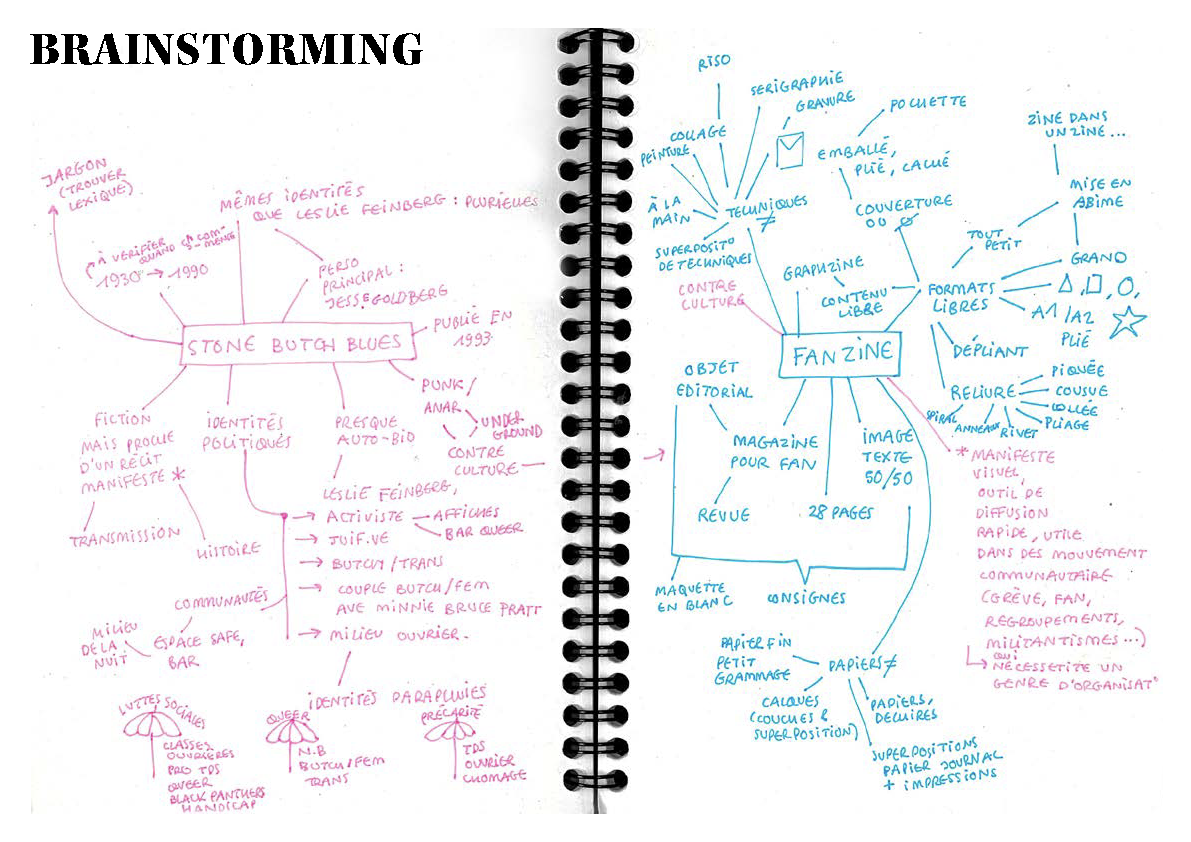 BRAINSTORMING
JARGON
(TROUVER
LEXIQUE)
MÊMES IDENTITÉS
QUE LESLIE FEINBERG : PLURIELLES
À VÉRIFIER
QUAND ÇA COM-
MENCE
1930 → 1990
PERSO
PRINCIPAL :
JESSE GOLDBERG
STONE BUTCH BLUES
PUBLIÉ EN
1993
FICTION
MAIS PROCHE
D'UN RÉCIT
MANIFESTE *
TRANSMISSION
HISTOIRE
IDENTITÉS
POLITIQUES
PRESQUE
AUTO-BIO
PUNK/
ANAR
UNDER-
GROUND
CONTRE
CULTURE
LESLIE FEINBERG,
→ ACTIVISTE
AFFICHES
BAR QUEER
→ JUIF.VE
→ BUTCH/TRANS
→ COUPLE BUTCH/FEM
AVE MINNIE BRUCE PRATT
→ MILIEU OUVRIER.
COMMUNAUTÉS
ESPACE SAFE,
BAR
MILIEU
DE LA
NUIT
IDENTITÉS PARAPLUIES
LUTTES SOCIALES
CLASSES
OUVRIÈRES
PRO TDS
QUEER
BLACK PANTHERS
HANDICAP
QUEER
N.B
BUTCH/FEM
TRANS
PRÉCARITÉ
TDS
OUVRIER
CHOMAGE
RISO
SERIGRAPHIE
GRAVURE
COLLAGE
PEINTURE
À LA
MAIN
TECHNIQUES
≠
SUPERPOSIT°
DE TECHNIQUES
CONTRE
CULTURE
POCHETTE
EMBALLÉ,
PLIÉ, CALLÉ
COUVERTURE
OU
ZINE DANS
UN ZINE...
MISE EN
ABIME
TOUT
PETIT
GRAND
GRAPHZINE
CONTENU
LIBRE
FORMATS
LIBRES
A1/A2
PLIÉ
FANZINE
DÉPLIANT
RELIURE
PIQUÉE
COUSUE
COLLÉE
PLIAGE
SPIRAL
ANNEAUX
RIVET
OBJET
EDITORIAL
MAGAZINE
POUR FAN
REVUE
IMAGE
TEXTE
50/50
28 PAGES
MAQUETTE
EN BLANC
CONSIGNES
* MANIFESTE
VISUEL,
OUTIL DE
DIFFUSION
RAPIDE, UTILE
DANS DES MOUVEMENT
COMMUNAUTAIRE
(GRÈVE, FAN,
REGROUPEMENTS,
MILITANTISMES...)
QUI
NÉCESSETITE UN
GENRE D'ORGANISAT°
PAPIERS ≠
PAPIER FIN
PETIT
GRAMMAGE
CALQUES
(COUCHES &
SUPERPOSITION)
PAPIERS,
DECHIRES
SUPERPOSITIONS
PAPIER JOURNAL
+ IMPRESSIONS